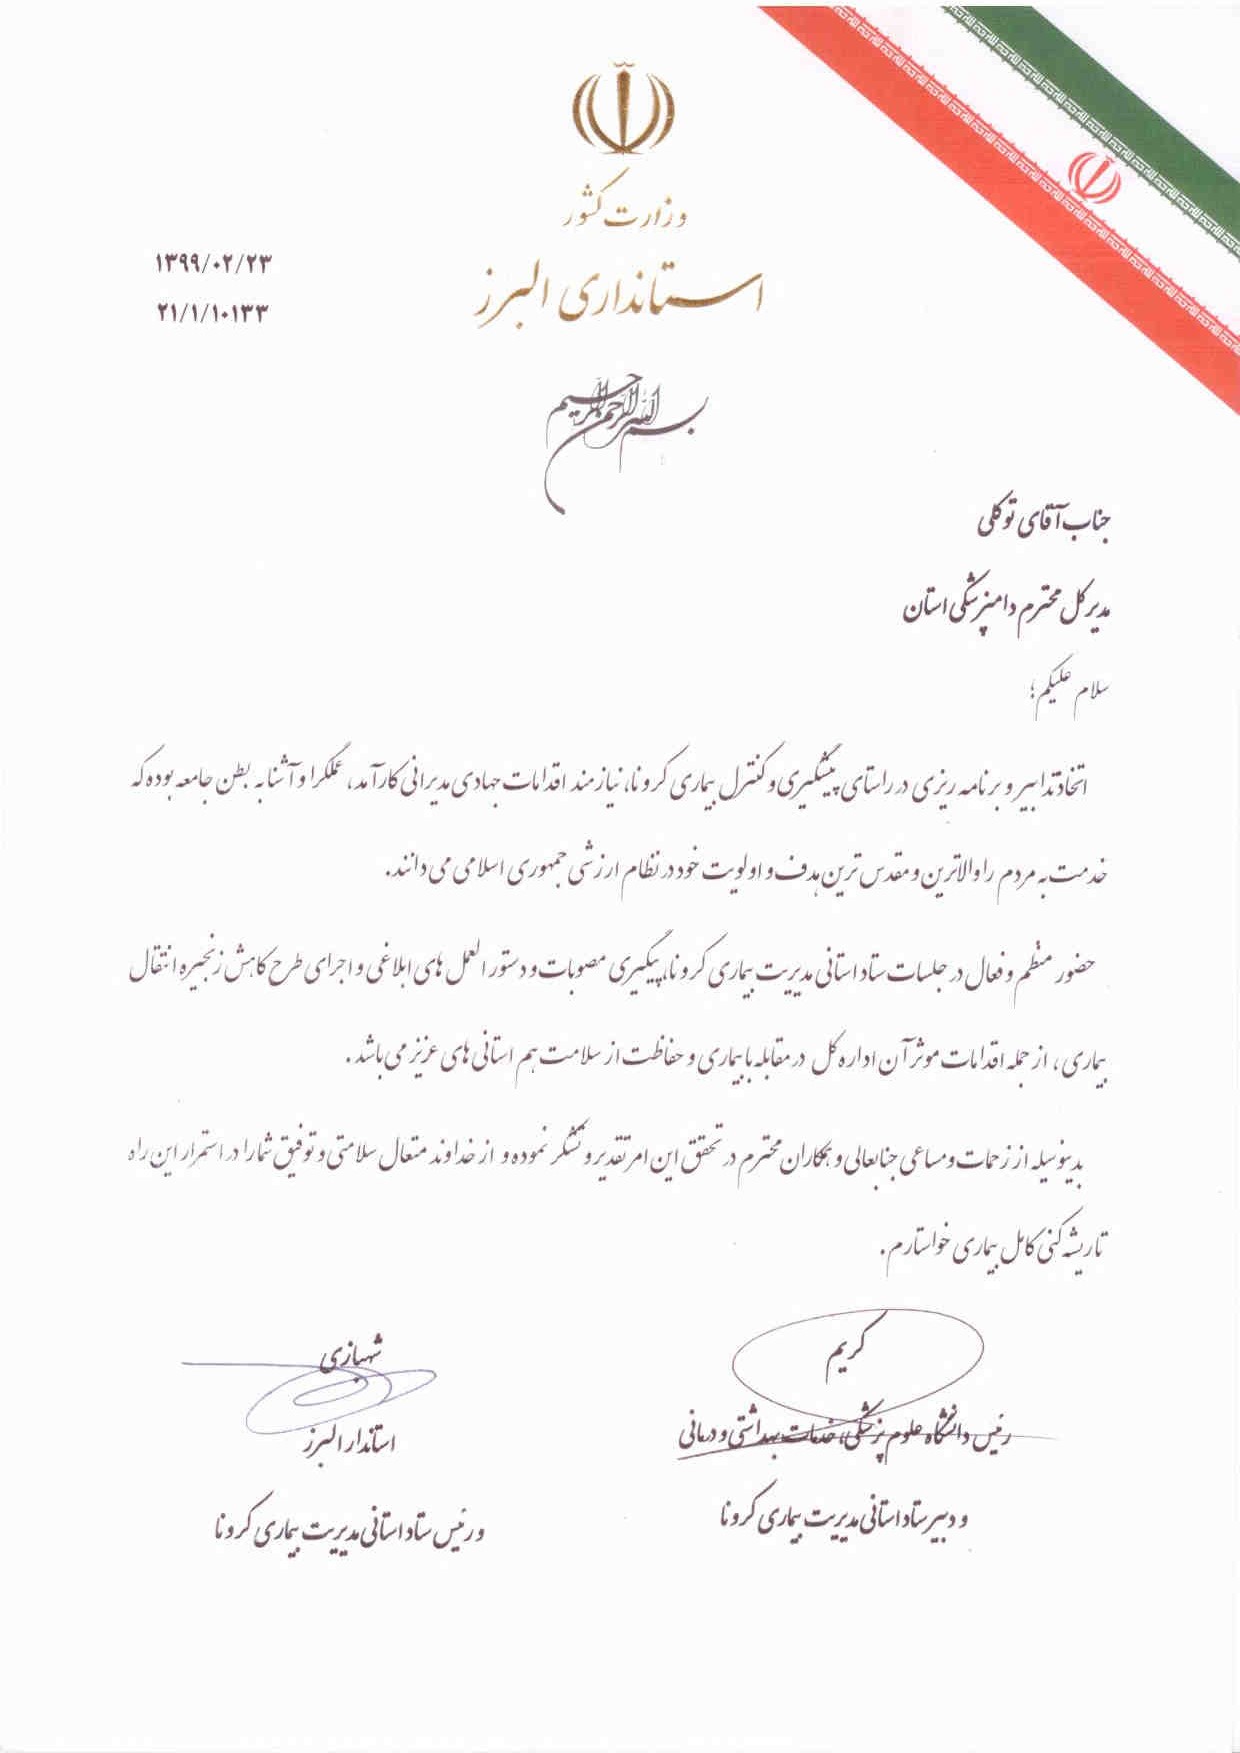 وزارت کشور
استانداری البرز
۱۳۹۹/۰۲/۲۳
۲۱/۱/۱۰۱۳۳
بسم الله الرحمن الرحیم
جناب آقای توکلی
مدیرکل محترم دامپزشکی استان
سلام علیکم؛
اتخاذ تدابیر و برنامه ریزی در راستای پیشگیری و کنترل بیماری کرونا، نیازمند اقدامات جهادی مدیرانی کارآمد، عملگرا و آشنا به بطن جامعه بوده که
خدمت به مردم را والاترین و مقدس ترین هدف و اولویت خود در نظام ارزشی جمهوری اسلامی می دانند.
حضور منظم و فعال در جلسات ستاد استانی مدیریت بیماری کرونا، پیگیری مصوبات و دستورالعمل های ابلاغی و اجرای طرح کاهش زنجیره انتقال
بیماری، از جمله اقدامات موثر آن اداره کل در مقابله با بیماری و حفاظت از سلامت هم استانی های عزیز می باشد.
بدینوسیله از زحمات و مساعی جنابعالی و همکاران محترم در تحقق این امر تقدیر و تشکر نموده و از خداوند متعال سلامتی و توفیق شما را در استمرار این راه
تا ریشه کنی کامل بیماری خواستارم.
کریم
رئیس دانشگاه علوم پزشکی، خدمات بهداشتی و درمانی
و دبیر ستاد استانی مدیریت بیماری کرونا
شهبازی
استاندار البرز
و رئیس ستاد استانی مدیریت بیماری کرونا